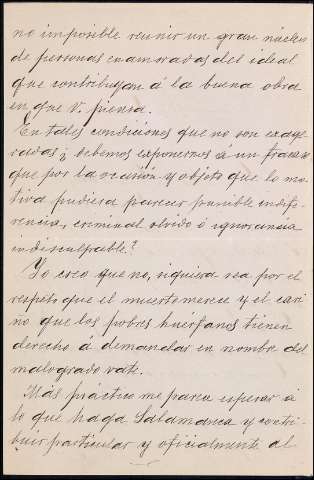 no imposible reunir un gran núcleo
de personas enamoradas del ideal
que contribuyan á la buena obra
en que V. piensa.
En tales condiciones que no son exage
radas ¿ debemos exponernos á un fracaso
que por la ocasión y objeto que lo mo-
tiva pudiera parecer punible indife-
rencia, criminal olvido ó ignorancia
indisculpable?
Yo creo que no, siquiera sea por el
respeto que el muerto merece y el cari
ño que los pobres huérfanos tienen
derecho á demandar en nombre del
malogrado vate.
Más práctico me parece esperar á
lo que haga Salamanca y contri-
buir particular y oficialmente al